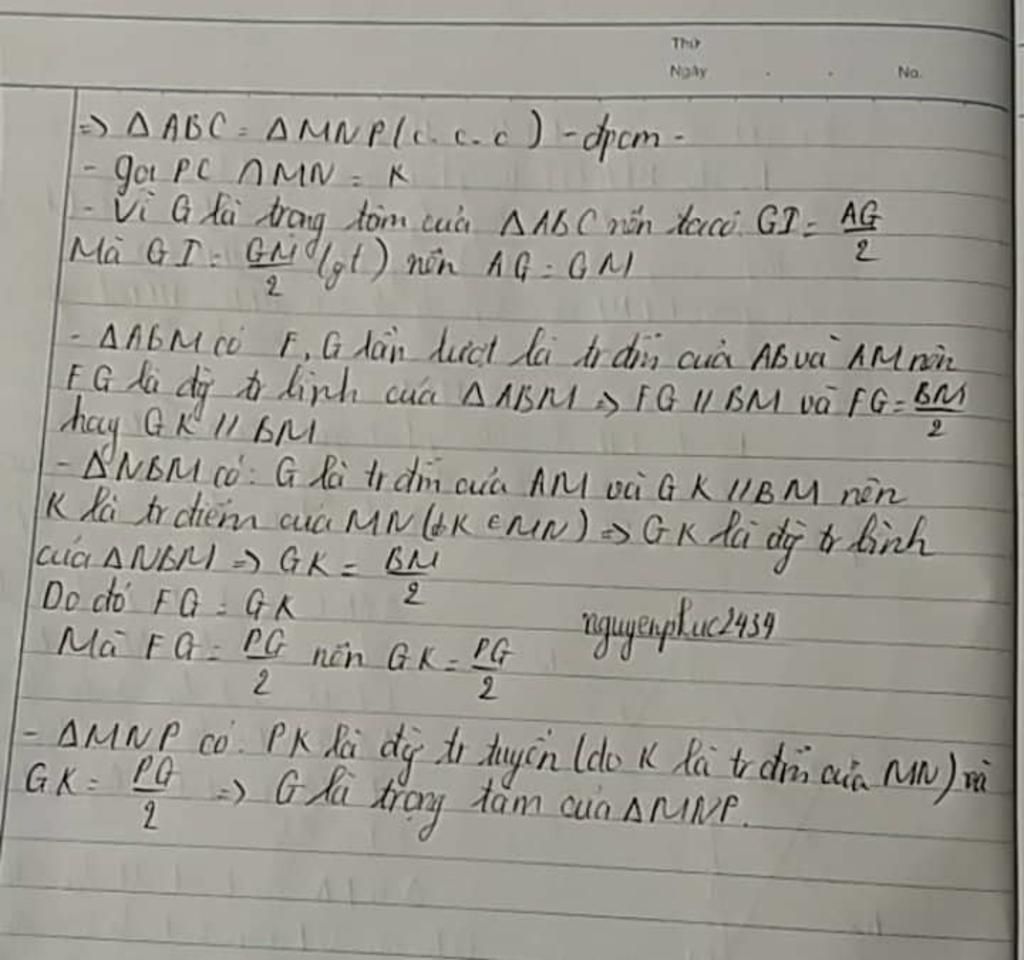 Thứ
Ngày . . No.
=> ΔABC = ΔMNP (c.c.c) - đpcm -
- gọi PC ∩ MN = K
- Vì G là trọng tâm của ΔABC nên ta có: GI = AG/2
Mà GI = GM/2 (gt) nên AG = GM
- ΔABM có F, G lần lượt là tr điểm của AB và AM nên
FG là đg tr bình của ΔABM => FG // BM và FG = BM/2
hay GK // BM
- ΔNBM có: G là tr điểm của AM và GK // BM nên
K là tr điểm của MN (do K ∈ MN) => GK là đg tr bình
của ΔNBM => GK = BM/2
Do đó FG = GK
nguyenphuc2439
Mà FG = PG/2 nên GK = PG/2
- ΔMNP có: PK là đg tr tuyến (do K là tr điểm của MN) và
GK = PG/2 => G là trọng tâm của ΔMNP.